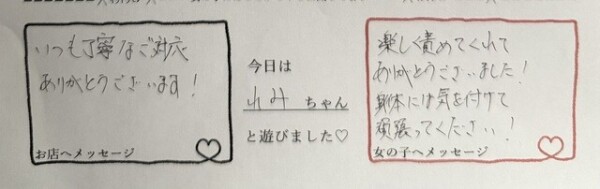 いつも丁寧なご対応
ありがとうございます!
お店へメッセージ
今日は
れみちゃん
と遊びました♡
楽しく責めてくれて
ありがとうございました!
身体には気を付けて
頑張ってください!
女の子へメッセージ